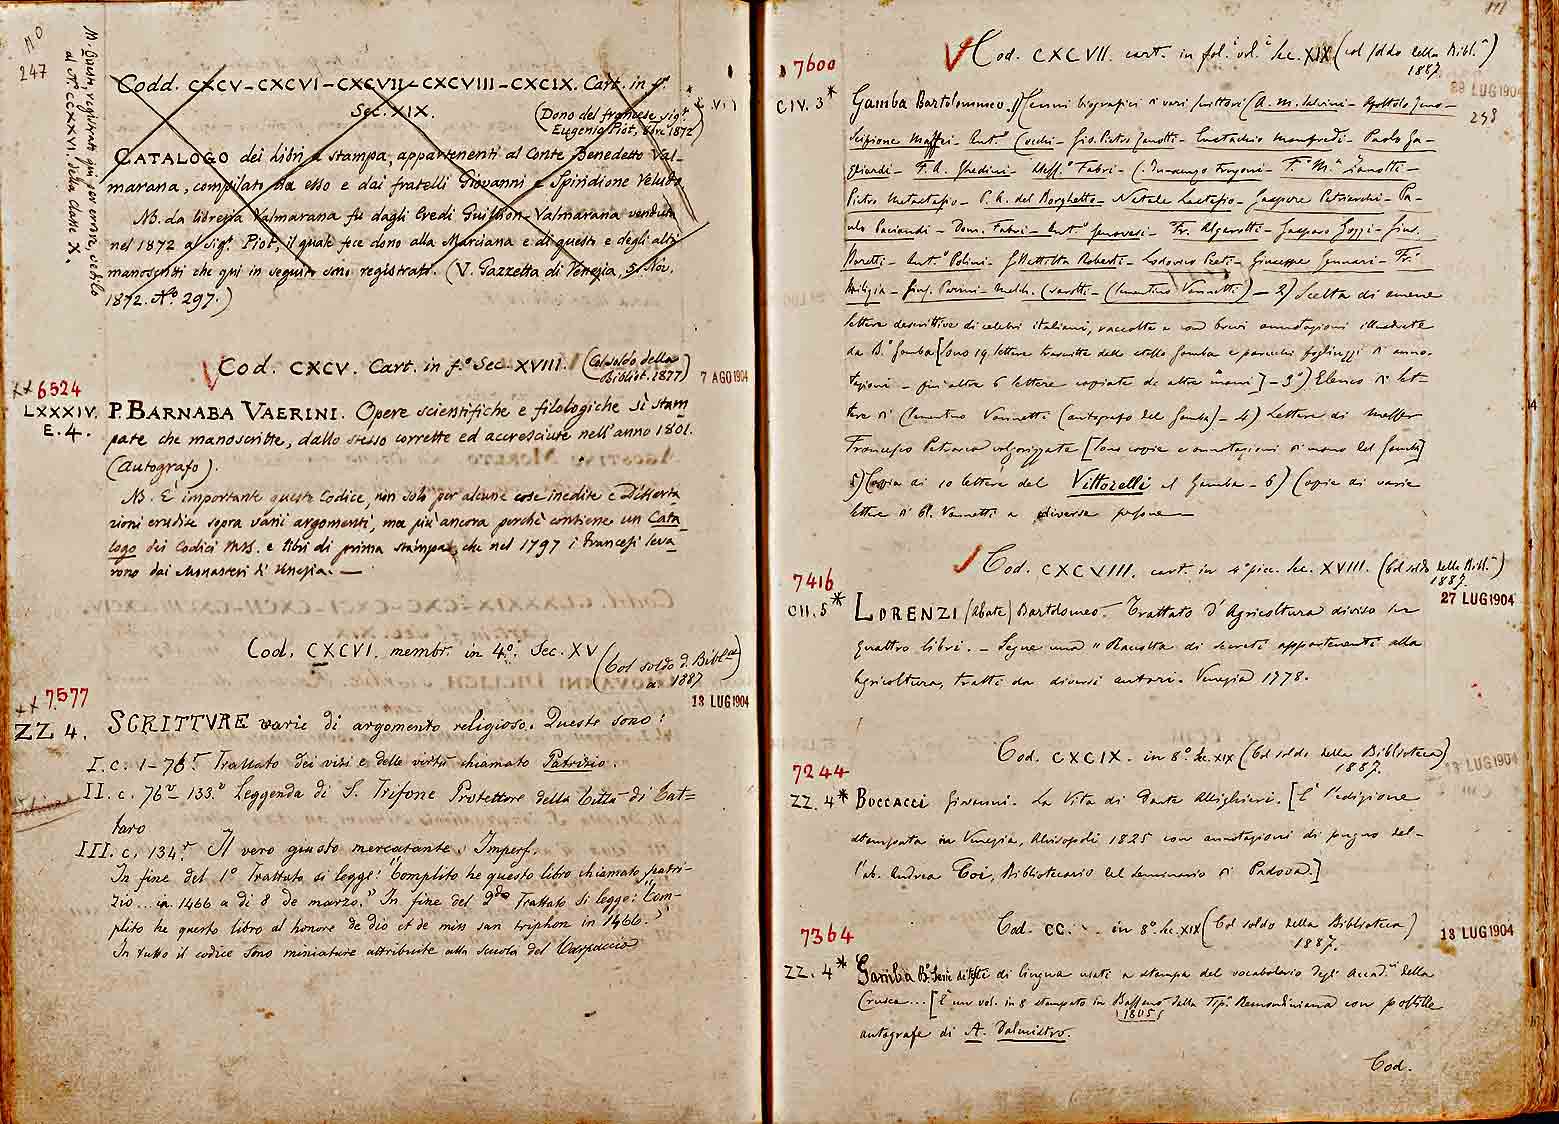 247
N. Questi, registrati qui per errore, vedilo
al N.º CCXXVI. della Classe X.
Codd. CXCV-CXCVI-CXCVII-CXCVIII-CXCIX. Cart. in fº.
Sec. XIX.
(Dono del francese sigr.
Eugenio Piot, 1872)
CATALOGO dei libri a stampa, appartenenti al Conte Benedetto Val-
marana, compilato da esso e dai fratelli Giovanni e Spiridione Veludo.
NB. da libreria Valmarana fu dagli Eredi Guillion-Valmarana venduta
nel 1872 al sigr. Piot, il quale fece dono alla Marciana e di questo e degli altri
manoscritti che qui in seguito sono registrati. (V. Gazzetta di Venezia, 5. Nov.
1872. Nº. 297.)
Cod. CXCV. Cart. in fº. Sec. XVIII. (Col soldo della
Bibliot. 1877)
7 AGO 1904
6524
LXXXIV.
E. 4.
P. BARNABA VAERINI. Opere scientifiche e filologiche sì stam
pate che manoscritte, dallo stesso corrette ed accresciute nell'anno 1801.
(Autografo).
NB. E' importante questo Codice, non solo per alcune cose inedite e Disserta
zioni erudite sopra varii argomenti, ma più ancora perchè contiene un Cata_
logo dei Codici MSS. e libri di prima stampa, che nel 1797 i Francesi leva_
rono dai Monasteri di Venezia. —
Cod. CXCVI. membr. in 4º. Sec. XV (Col soldo d. Bibl.
a. 1887
18 LUG 1904
7577
ZZ 4.
SCRITTVRE varie di argomento religioso. Queste sono:
I. c. 1-76r. Trattato dei vizi e delle virtù chiamato Patrizio.
II. c. 76v-133.v Leggenda di S. Trifone Protettore della Città di Cat=
taro
III. c. 134r. Il vero giusto mercatante. Imperf.
In fine del 1º Trattato si legge: "Complito he questo libro chiamato patri-
zio... in 1466 a dì 8 de marzo." In fine del 2do Trattato si legge: "Com-
plito he questo libro al honore de dio et de miss san triphon in 1466."
In tutto il codice sono miniature attribuite alla scuola del Carpaccio
Cod. CXCVII. cart. in fol. vol. Sec. XIX (col soldo della Bibl.
1887.
7600
CIV. 3*
LUG 1904
248
Gamba Bartolommeo. 1) Cenni biografici di vari scrittori (A. M. Salvini - Apostolo Zeno -
Scipione Maffei - Ant.º Cocchi - Gio. Pietro Zanotti - Eustachio Manfredi - Paolo Ga-
gliardi - F. A. Ghedini - Fabri - C. Innocenzo Frugoni - F. M.ª Zanotti -
Pietro Metastasio - P. A. del Borghetto - Natale Lastesio - Gaspare Patriarchi - Pa-
olo Paciaudi - Dom. Fabri - Ant.º Genovesi - Fr. Algarotti - Gasparo Gozzi - Gius.
Baretti - Ant.º Golini - GBattista Roberti - Lodovico Preti - Giuseppe Gennari - Fr.
Milizia - Gius. Parini - Melch. Cesarotti - Clementino Vannetti) - 2) Scelta di amene
lettere descrittive di celebri italiani, raccolte e con brevi annotazioni illustrate
da B.º Gamba [Sono 19. lettere trascritte dallo stesso Gamba e parecchi fogliuzzi di anno-
tazioni - più altre 6 lettere copiate da altre mani] - 3º) Elenco di let-
tere di Clementino Vannetti (autografo del Gamba) - 4) Lettere di messer
Francesco Petrarca volgarizzate [Sono copie e annotazioni di mano del Gamba]
5) Copia di 10 lettere del Vittorelli al Gamba - 6) Copia di varie
lettere di Cl. Vannetti a diverse persone —
Cod. CXCVIII. cart. in 4º picc. Sec. XVIII. (Col soldo della Bibl.
1887.
7416
CII. 5*
27 LUG 1904
LORENZI (Abate) Bartolomeo. Trattato d'Agricoltura diviso in
quattro libri. - Segue una "Raccolta di secreti appartenenti alla
Agricoltura, tratti da diversi autori. Venezia 1778.
Cod. CXCIX. in 8º. Sec. XIX (Col soldo della Biblioteca)
1887.
7244
ZZ. 4*
13 LUG 1904
BOCCACCI Giovanni. La Vita di Dante Allighieri. [E' l'edizione
stampata in Venezia, Alvisopoli 1825 con annotazioni di pugno del-
l'ab. Andrea Coi, Bibliotecario del Seminario di Padova.]
Cod. CC. in 8º. Sec. XIX (Col soldo della Biblioteca)
1887.
7364
ZZ. 4*
18 LUG 1904
Gamba Bº. Serie de' testi di lingua usati a stampa del vocabolario degli Accad.i della
Crusca... [E' un vol. in 8 stampato in Bassano dalla Tip. Remondiniana con postille
1805
autografe di A. Dalmistro.
Cod.